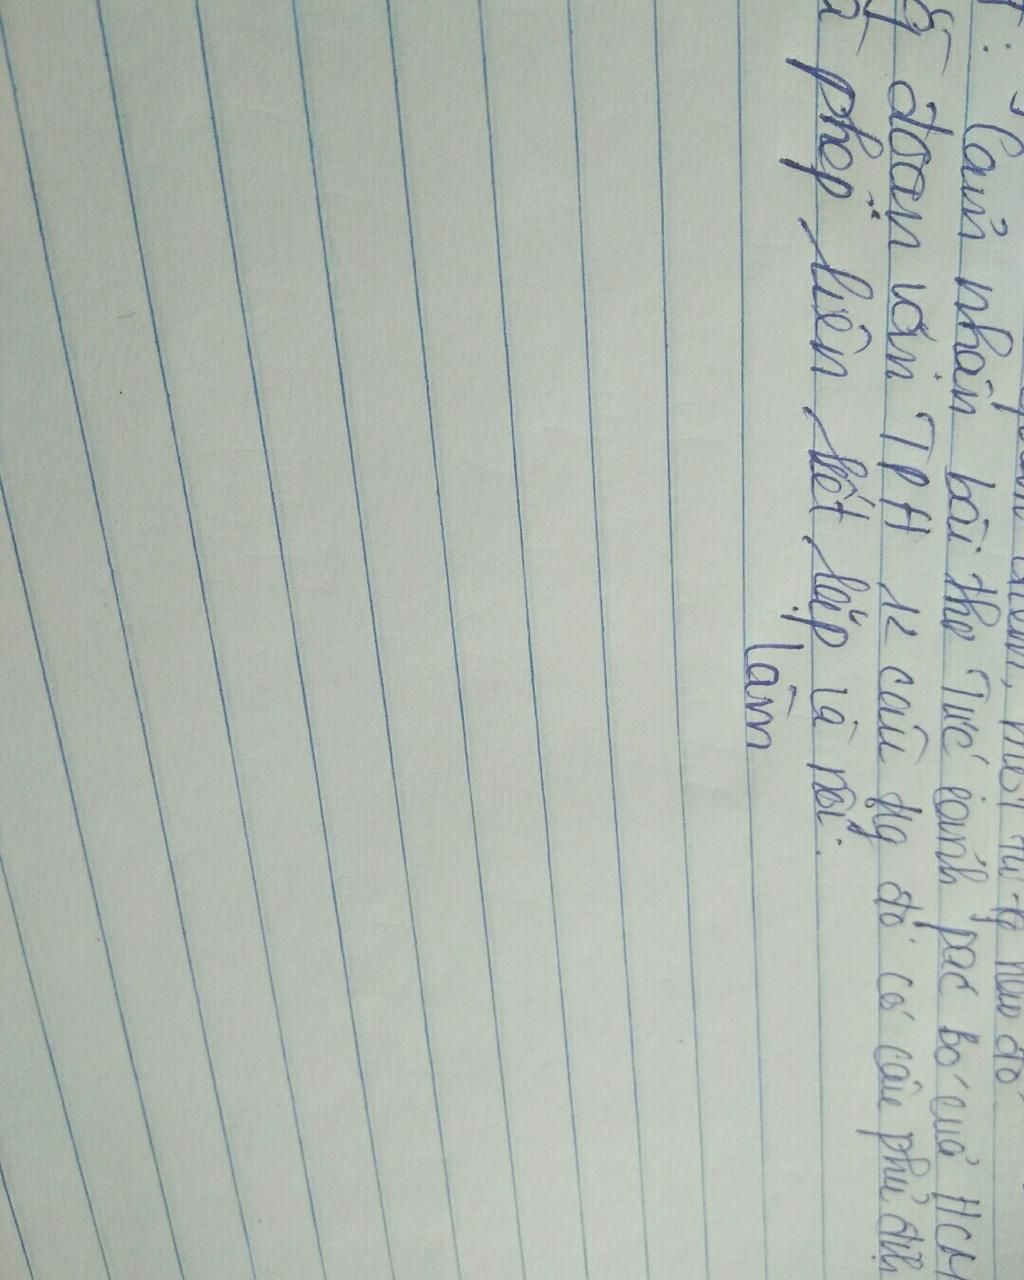 điểm, nào đó
Cảm nhận bài thơ Tức cảnh pác bó của HCM
đoạn văn TPH 12 câu tg đó có câu phủ địh
phép liên kết lặp và nối.
Làm